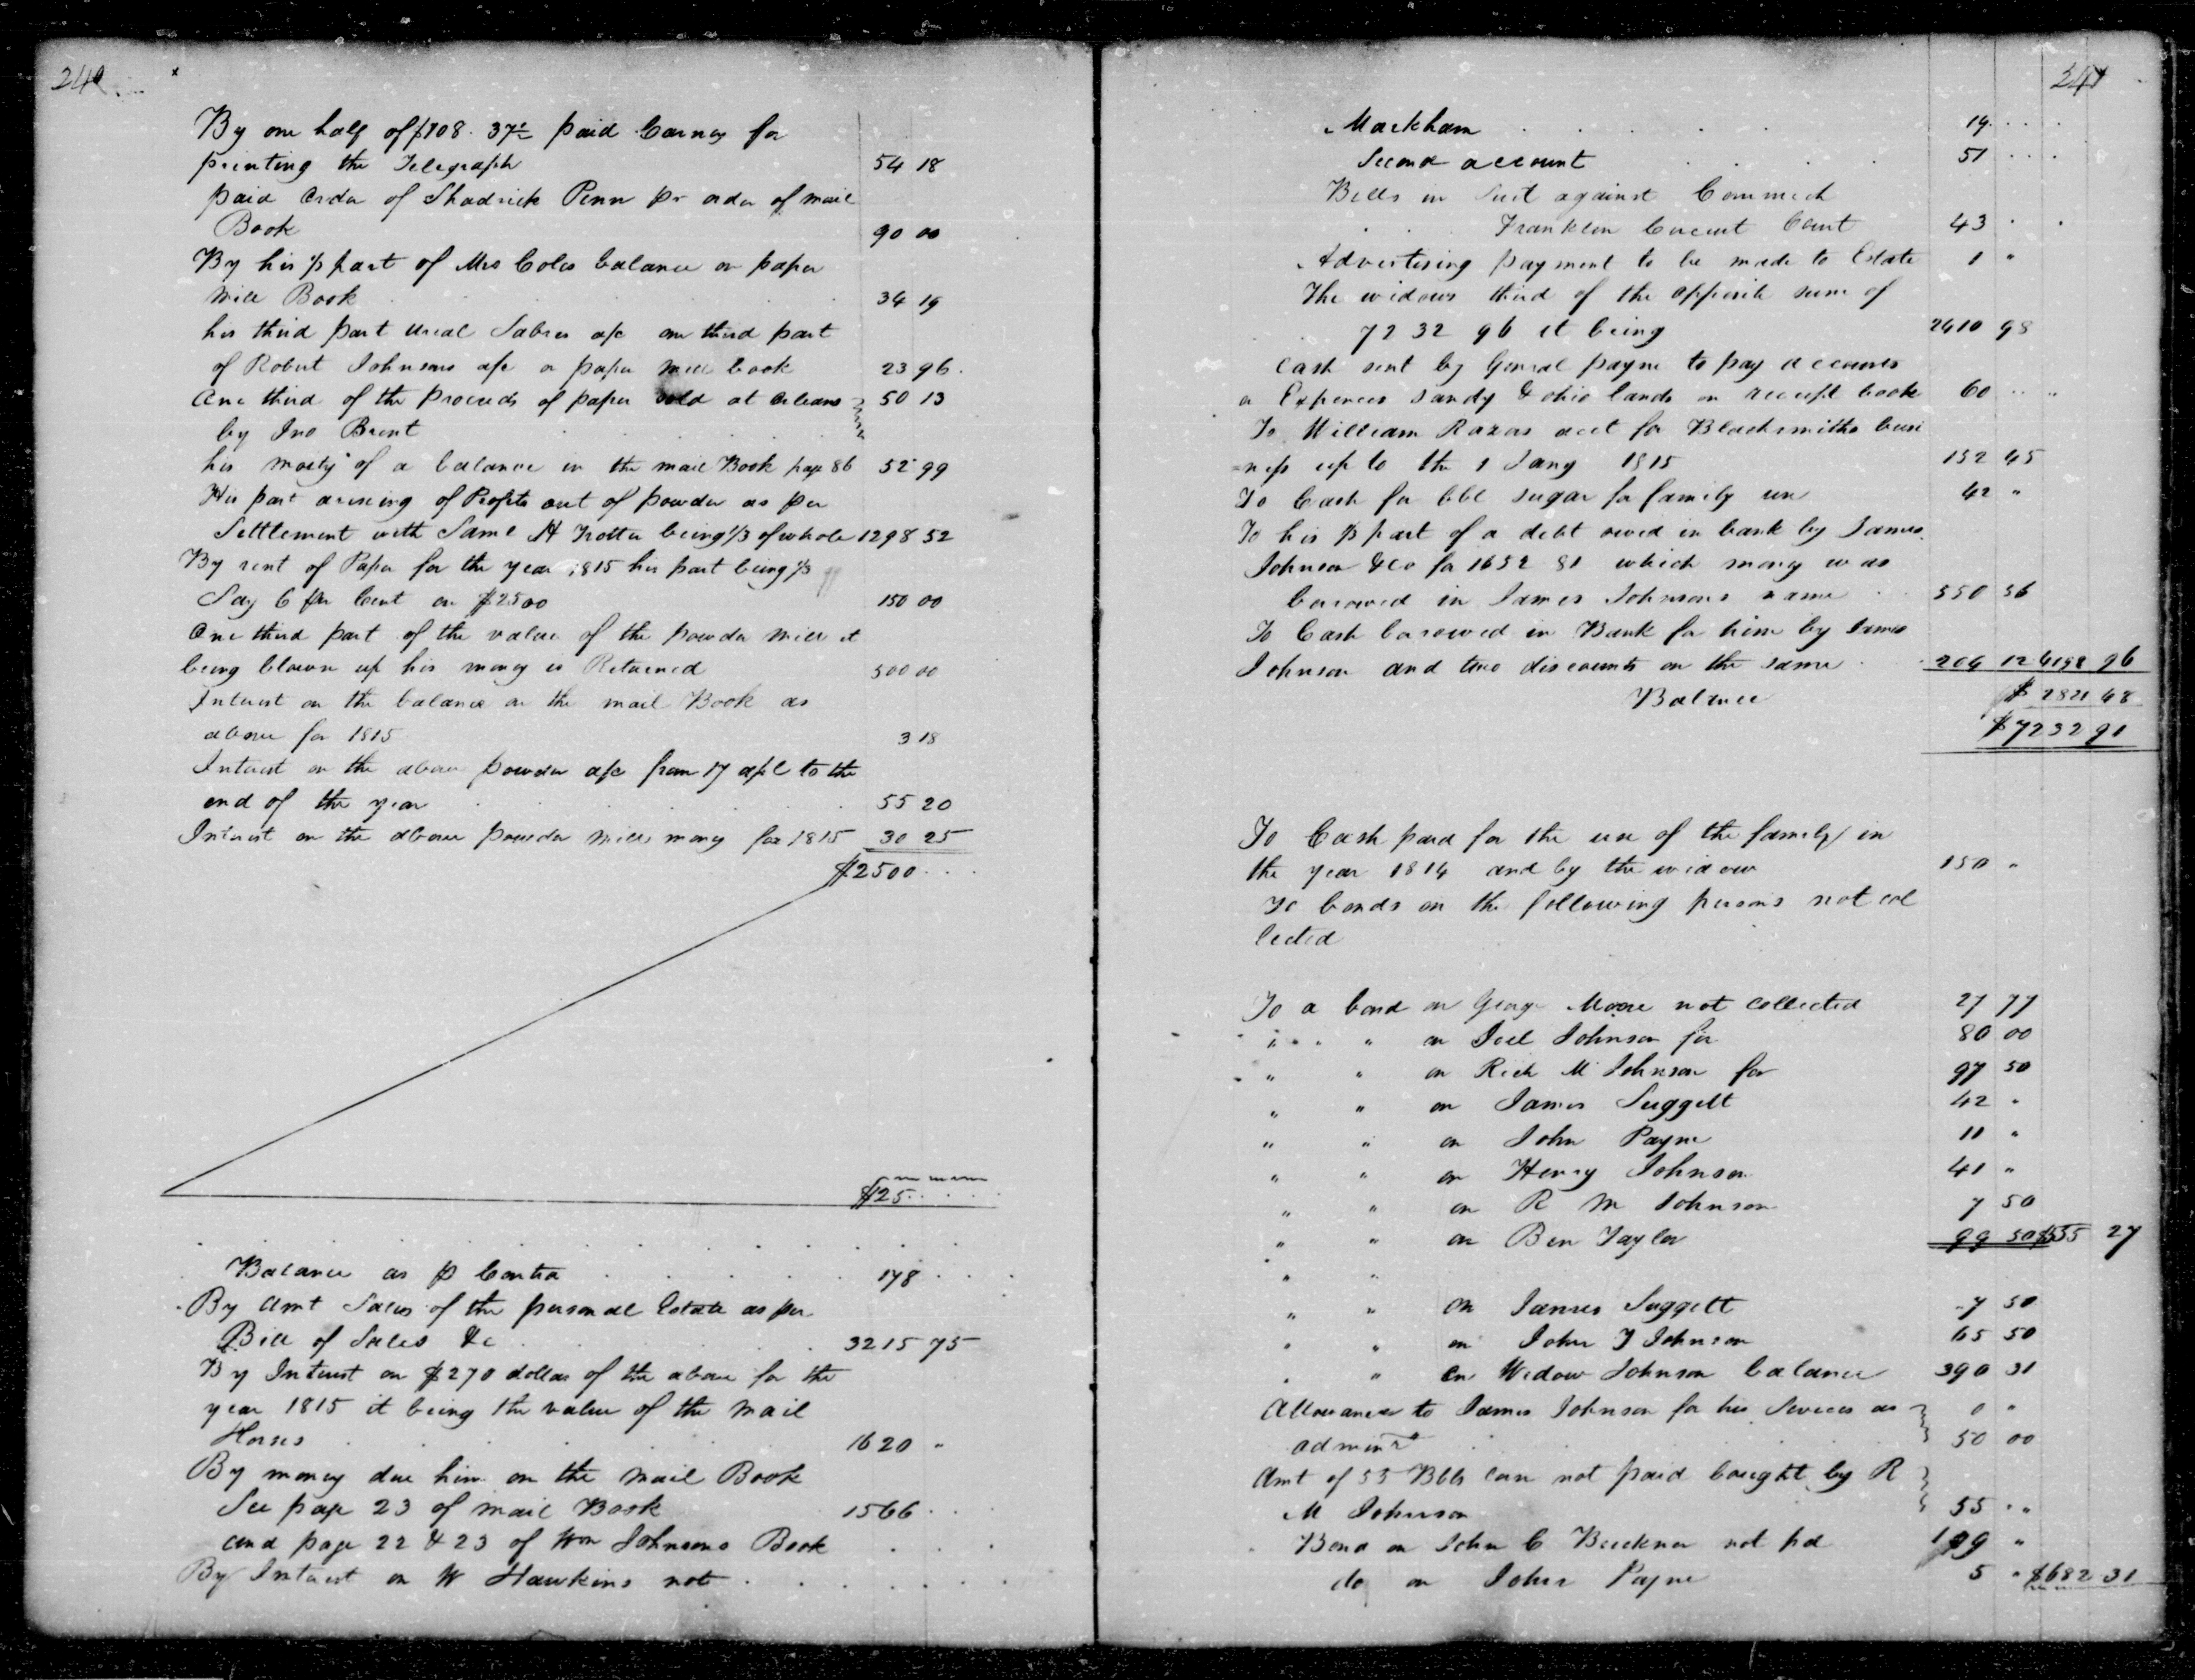 240
By one half of $108. 37½ paid Carney for
printing the Telegraph 54 18
paid order of Shadrick Penn pr order of mail
Book 90 00
By his ⅓ part of Mrs Coles balance on paper
Mill Book 34 19
his third part Sabres a/c one third part
of Robert Johnsons a/c on paper mill book 23 96
One third of the Proceeds of paper sold at Orleans 50 13
by Jno Brent
his moety of a balance in the mail Book page 86 52 99
His part arising of Profits out of powder as per
Settlement with Saml H Trotter being 1/3 of whole 1298 52
By rent of Paper for the year 1815 his part being ⅓
Say 6 per Cent on $2500 150 00
One third part of the value of the powder mill it
being blown up his money is Returned 500 00
Interest on the balance on the mail Book as
above for 1815 3 18
Interest on the above powder a/c from 17 apl to the
end of the year 55 20
Interest on the above powder mills money for 1815 30 25
$2500
$25
Balance as p Contra 178
By Amt Sales of the personal Estate as per
Bill of Sales &c 3215 75
By Interest on $270 dollars of the above for the
year 1815 it being the value of the mail
Horses 16 20 "
By money due him on the mail Book
See page 23 of mail Book 1566
and page 22 & 23 of Wm Johnsons Book
By Interest on W Hawkins not
241
Markham 19
Second account 51
Bills in Suit against
Franklin Circuit Court 43
Advertising payment to be made to Estate 1 "
The widows third of the opposite sum of
72 32 96 it being 2410 98
Cash sent by General payne to pay accounts
a Expences Sandy & ohio lands on receipt book 60
To William Razas acct for Blacksmiths busi
=ness up to the 1 Jany 1815 152 45
To Cash for bbl sugar for family use 42 "
To his ⅓ part of a debt owed in bank by James
Johnson & Co for 1652 81 which money was
borowed in James Johnsons name 550 56
To Cash borowed in Bank for him by James
Johnson and two discounts on the same 204 12 4198 96
Balance $ 2821 48
$7232 91
To Cash paid for the use of the family in
the year 1814 and by the widow 150 "
To bonds on the following persons not col
lected
To a bond on George Moore not collected 27 77
" " " on Joel Johnson for 80 00
" " on Rich M Johnson for 97 50
" " on James Suggett 42 "
" " on John Payne 11 "
" " on Henry Johnson 41 "
" " on R M Johnson 7 50
" " on Ben Taylor 99 50 $555 27
" "
" " on James Suggett 7 50
" " on John T Johnson 65 50
" " on Widow Johnson balance 390 31
Allowance to James Johnson for his Services as 0 "
adminr 50 00
Amt of 55 Bbls corn not paid bought by R
M Johnson 55 "
Bond on John C Buckner not pd 109 "
do on John Payne 5 " $682 31